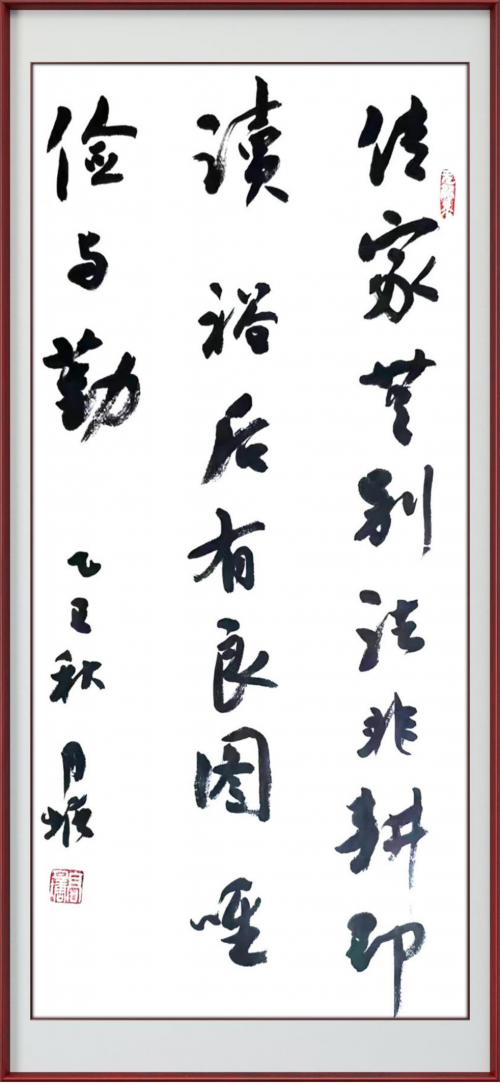 传家無别法非耕即
读裕后有良图唯
俭与勤
乙巳秋月